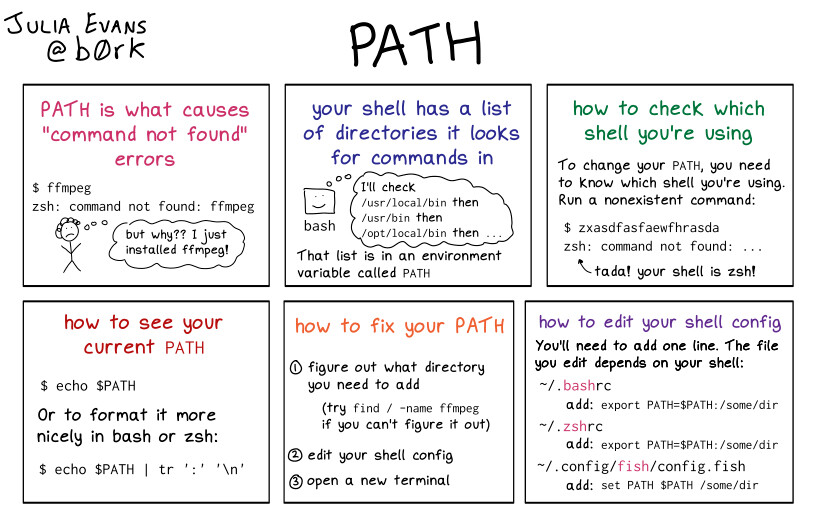 JULIA EVANS
@b0rk
PATH
PATH is what causes
"command not found"
errors
$ ffmpeg
zsh: command not found: ffmpeg
but why?? I just
installed ffmpeg!
your shell has a list
of directories it looks
for commands in
I'll check
/usr/local/bin then
/usr/bin then
/opt/local/bin then ...
bash
That list is in an environment
variable called PATH
how to check which
shell you're using
To change your PATH, you need
to know which shell you're using.
Run a nonexistent command:
$ zxasdfasfaewfhrasda
zsh: command not found: ...
tada! your shell is zsh!
how to see your
current PATH
$ echo $PATH
Or to format it more
nicely in bash or zsh:
$ echo $PATH | tr ':' '\n'
how to fix your PATH
① figure out what directory
you need to add
(try find / -name ffmpeg
if you can't figure it out)
② edit your shell config
③ open a new terminal
how to edit your shell config
You'll need to add one line. The file
you edit depends on your shell:
~/.bashrc
add: export PATH=$PATH:/some/dir
~/.zshrc
add: export PATH=$PATH:/some/dir
~/.config/fish/config.fish
add: set PATH $PATH /some/dir